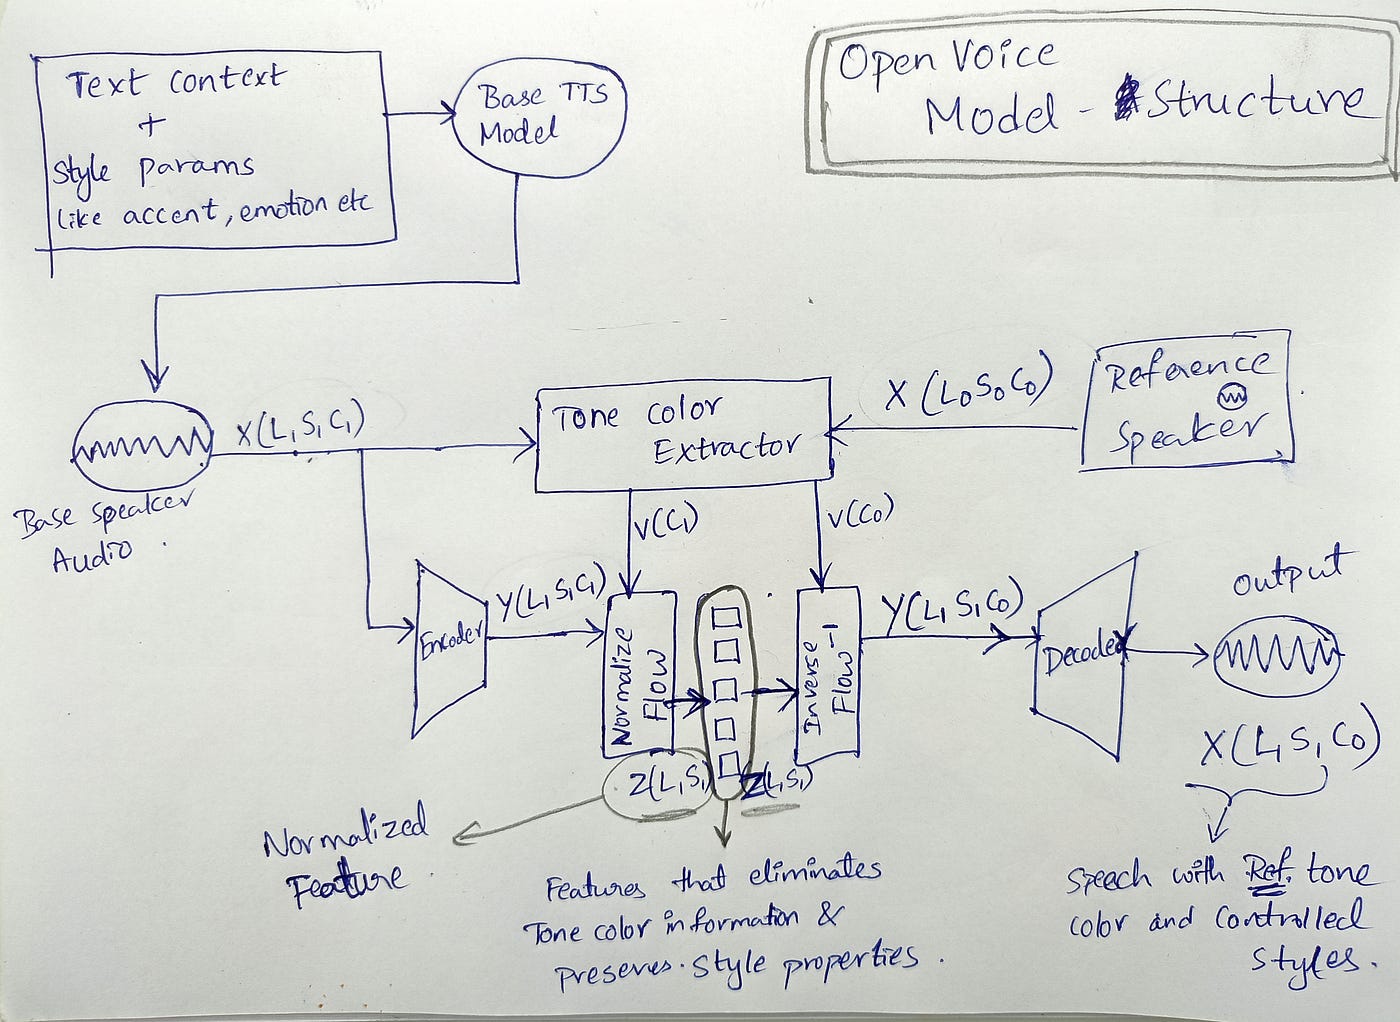 Open Voice
Model - Structure
Text context
+
Style params
like accent, emotion etc
Base TTS
Model
X(L₁S₁C₁)
Base speaker
Audio .
Tone color
Extractor
X (L₀S₀C₀)
Reference
Speaker
V(C₁)
V(C₀)
Encoder
Y(L₁S₁C₁)
Normalize
Flow
Z(L₁S₁)
Z(L₁S₁)
Inverse
Flow⁻¹
Y(L₁S₁C₀)
Decoder
output
X(L₁S₁C₀)
Normalized
Feature .
Features that eliminates
Tone color information &
preserves. style properties .
Speech with Ref. tone
color and controlled
styles.